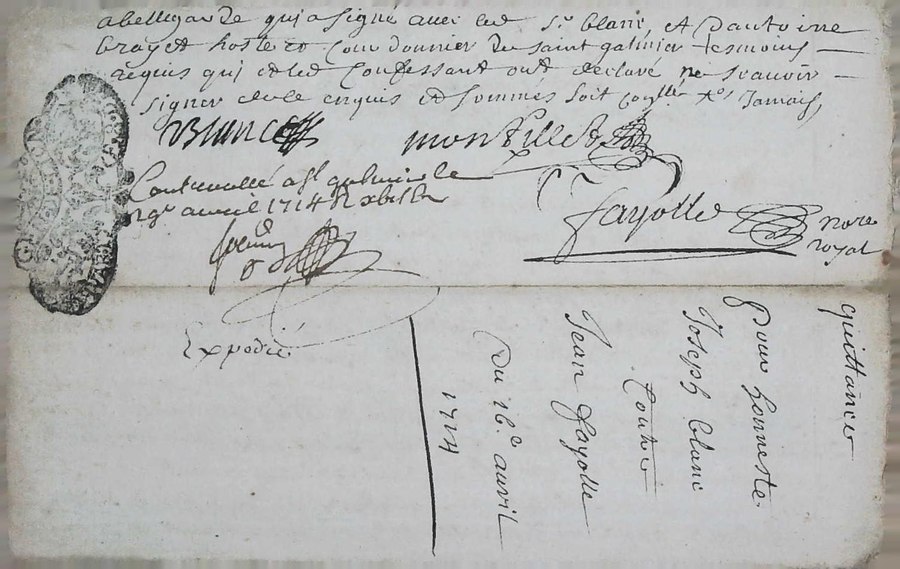 abellegarde qui a signé avec led sr. blanc, et d'antoine
brayet hoste et courdonnier du saint galmier tesmoins
requis qui et led Confessant ont declaré ne scavoir
signer de ce enquis et sommes soit Jamais,
Blanc
montillet
Controllé a st galmier le
avril 1714
fayolle
Nore
royal
Expedié
quittance
pour honneste
Joseph blanc
Contre
Jean fayolle
Du 16.e avril
1714